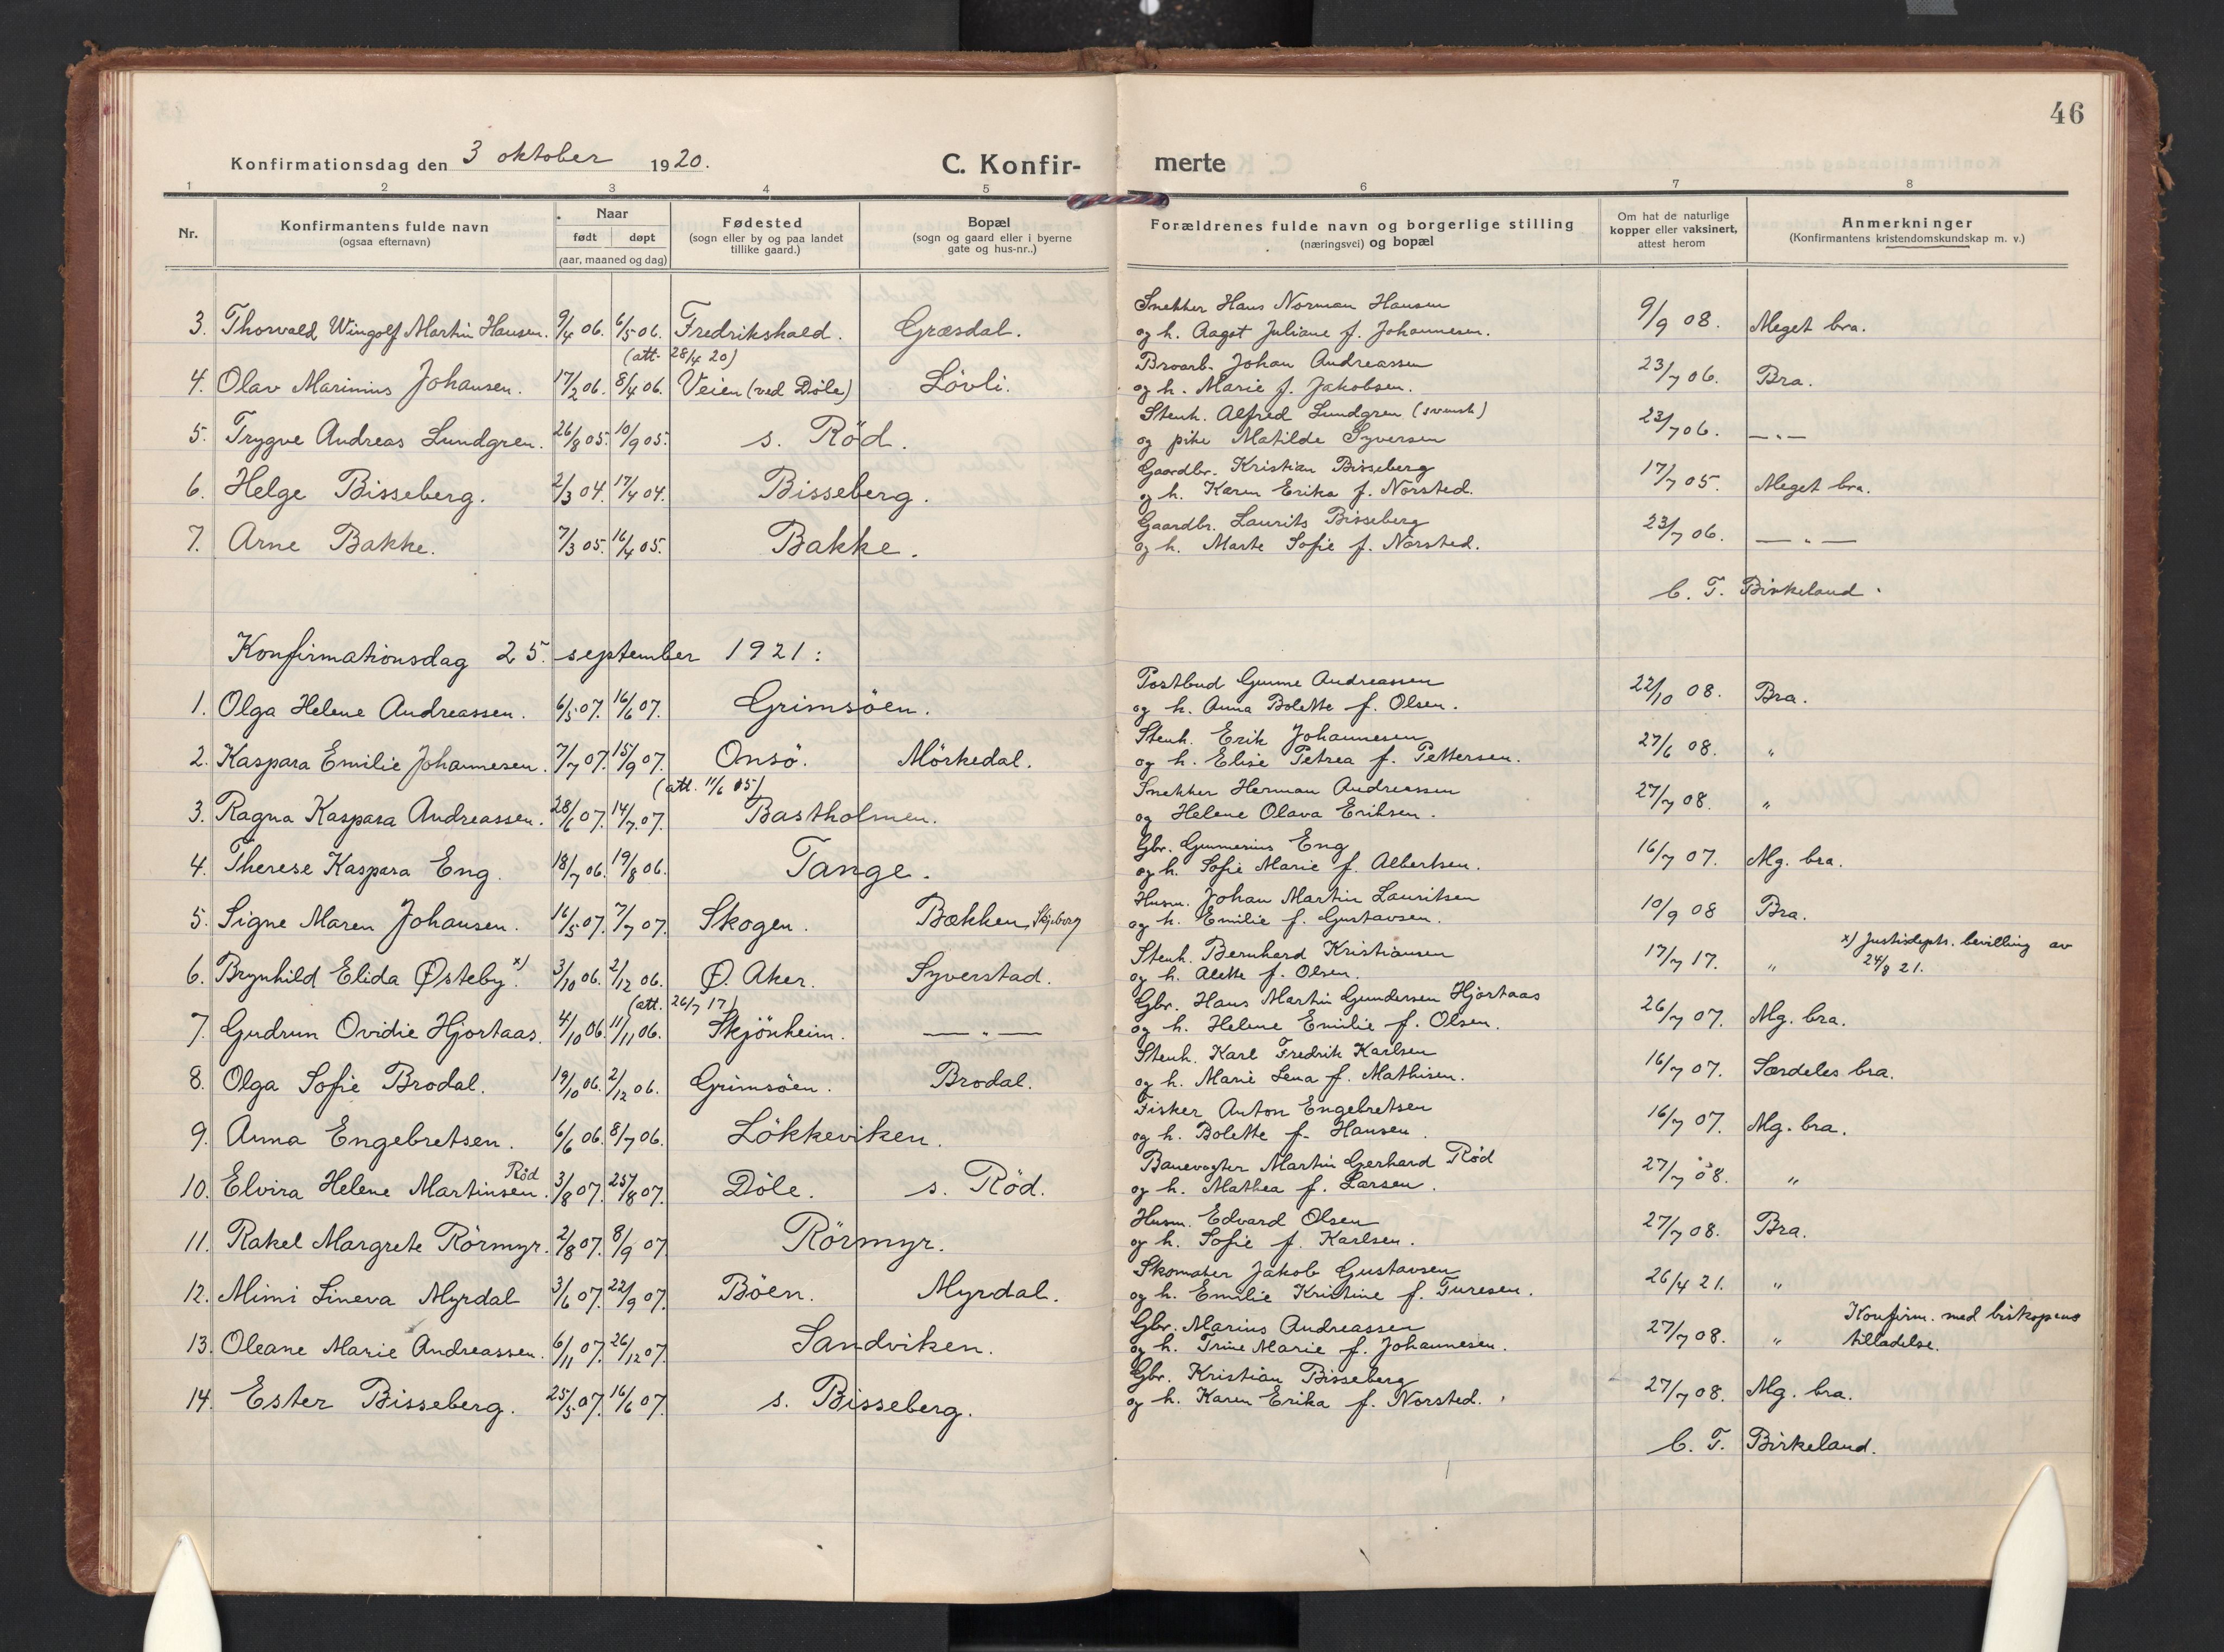 46
Konfirmationsdag den 3 oktober 1920. C. Konfir- merte
1 2 3 4 5 6 7 8
Nr. Konfirmantens fulde navn (ogsaa efternavn) Naar født døpt (aar, maaned og dag) Fødested (sogn eller by og paa landet tillike gaard.) Bopæl (sogn og gaard eller i byerne gate og hus-nr..) Forældrenes fulde navn og borgerlige stilling (næringsvei) og bopæl Om hat de naturlige kopper eller vaksinert, attest herom Anmerkninger (Konfirmantens kristendomskundskap m. v.)
3. Thorvald Wingolf Martin Hansen. 9/4 06. 6/5 06. Fredrikshald. Græsdal. Snekker Hans Norman Hansen
og h. Aagot Juliane f. Johannesen. 9/9 08. Meget bra.
(att. 28/4 20)
4. Olav Marinius Johansen. 17/2 06. 8/4 06. Veien (ved Döle) Lövli. Broarb. Johan Andreassen
og h. Marie f. Jakobsen. 23/7 06. Bra.
5. Trygve Andreas Lundgren. 26/8 05. 10/9 05. s. Röd. Stenh. Alfred Lundgren (svensk)
og pike Matilde Syversen 23/7 06. — " —
6. Helge Bisseberg. 2/3 04. 17/4 04. Bisseberg. Gaardbr. Kristian Bisseberg
og h. Karen Erika f. Norsted. 17/7 05. Meget bra.
7. Arne Bakke. 7/3 05. 16/4 05. Bakke. Gaardbr. Laurits Bisseberg
og h. Marte Sofie f. Norsted. 23/7 06. — " —
C. T. Birkeland.
Konfirmationsdag 25. september 1921:
1. Olga Helene Andreassen. 6/5 07. 16/6 07. Grimsöen. Postbud Gunne Andreassen
og h. Anna Bolette f. Olsen. 22/10 08. Bra.
2. Kaspara Emilie Johannesen. 7/7 07. 15/9 07. Onsö. Mörkedal. Stenh. Erik Johannesen
og h. Elise Petrea f. Pettersen. 27/6 08. "
(att. 11/6 05)
3. Ragna Kaspara Andreassen. 28/6 07. 14/7 07. Bastholmen. Snekker Herman Andreassen
og Helene Olava Eriksen. 27/7 08. "
4. Therese Kaspara Eng. 18/7 06. 19/8 06. Tange. Gbr. Gunnerius Eng
og h. Sofie Marie f. Albertsen. 16/7 07. Mg. bra.
5. Signe Maren Johansen. 16/5 07. 7/7 07. Skogen. Bækken, Skjeberg Husm. Johan Martin Lauritsen
og h. Emilie f. Gustavsen. 10/9 08 Bra.
6. Brynhild Elida Østeby. x) 3/10 06. 2/12 06. Ø. Aker. Syverstad. Stenh. Bernhard Kristiansen
og h. Alette f. Olsen. 17/7 17. " x) Justisdepts. bevilling av
24/8 21.
(att. 26/7 17)
7. Gudrun Ovidie Hjortaas. 4/10 06. 11/11 06. Skjönheim. — " — Gbr. Hans Martin Gundersen Hjortaas
og h. Helene Emilie f. Olsen. 26/7 07. Mg. bra.
8. Olga Sofie Brodal. 19/10 06. 2/12 06. Grimsöen. Brodal. Stenh. Karl Fredrik Karlsen
og h. Marie Lena f. Mathisen. 16/7 07. Særdeles bra.
9. Anna Engebretsen. 6/6 06. 8/7 06. Lökkeviken. Fisker Anton Engebretsen
og h. Bolette f. Hansen. 16/7 07. Mg. bra.
10. Elvira Helene Martinsen Röd. 3/8 07. 25/8 07. Döle. s. Röd. Banevogter Martin Gerhard Röd
og h. Mathea f. Larsen. 27/7 08. "
11. Rakel Margrete Rörmyr. 2/8 07. 8/9 07 Rörmyr. Husm. Edvard Olsen
og h. Sofie f. Karlsen. 27/7 08. Bra.
12. Mimi Lineva Myrdal 3/6 07. 22/9 07. Böen. Myrdal. Skomaker Jakob Gustavsen
og h. Emilie Kristine f. Turesen. 26/4 21. "
13. Oleane Marie Andreassen. 6/11 07. 26/12 07. Sandviken. Gbr. Marius Andreassen
og h. Trine Marie f. Johannesen. 27/7 08. " Konfirm. med biskopens
tilladelse.
14. Ester Bisseberg. 25/5 07. 16/6 07. s. Bisseberg. Gbr. Kristian Bisseberg
og h. Karen Erika f. Norsted. 27/7 08. Mg. bra.
C. T. Birkeland.